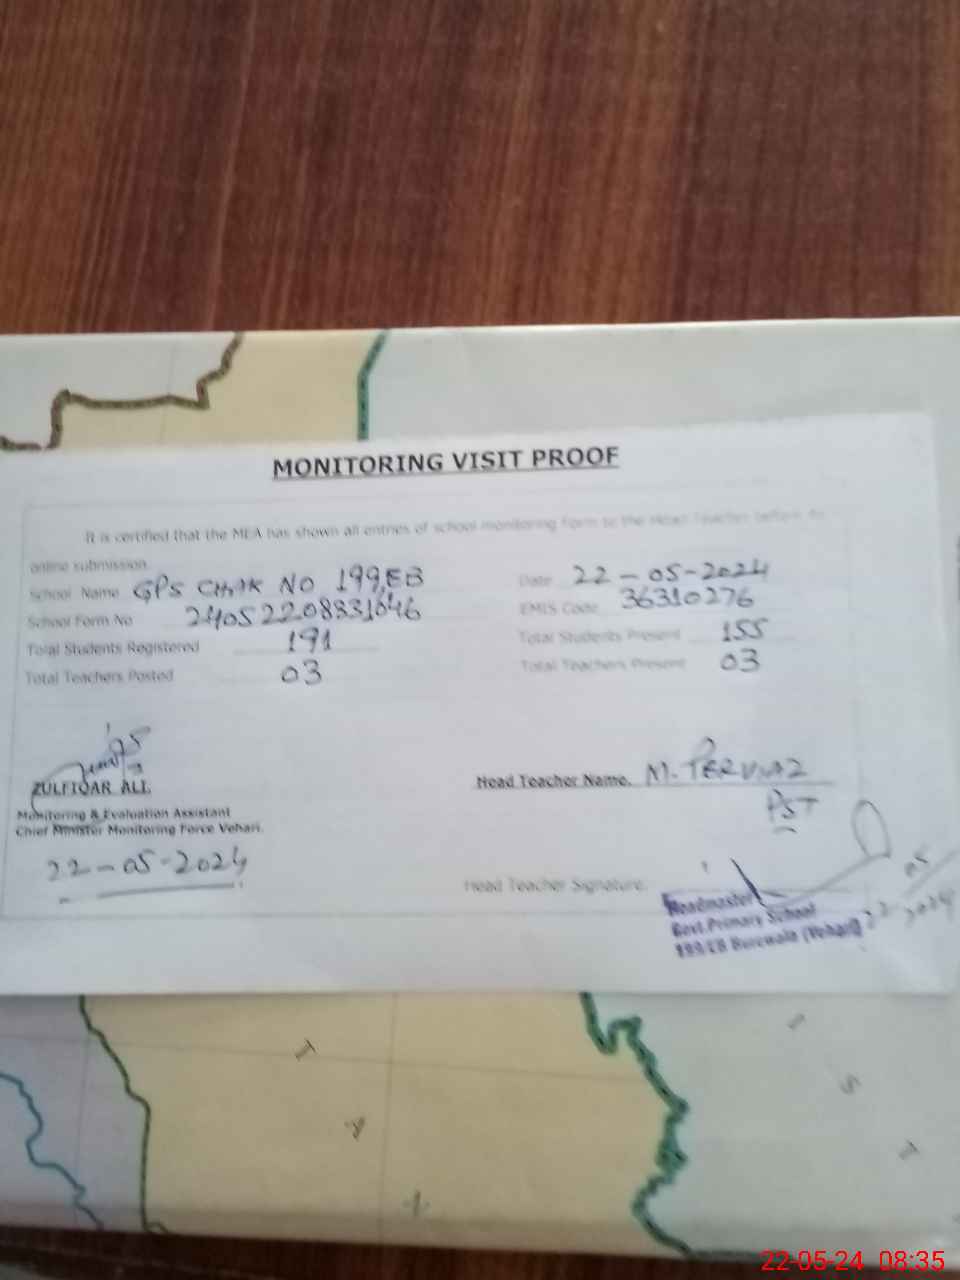 MONITORING VISIT PROOF
It is certified that the MEA has shown all entries of school monitoring form to the Head Teacher before its
online submission.
School Name GPS CHAK NO 199/EB Date 22-05-2024
School Form No 24052208831046 EMIS Code 36310276
Total Students Registered 191 Total Students Present 155
Total Teachers Posted 03 Total Teachers Present 03
ZULFIQAR ALI
Monitoring & Evaluation Assistant
Chief Minister Monitoring Force Vehari.
22-05-2024
Head Teacher Name. M. PERVAIZ
PST
Head Teacher Signature.
Headmaster
Govt. Primary School
199/EB Burewala (Vehari)
22 05 2024
T
A
T
S
T
22-05-24 08:35